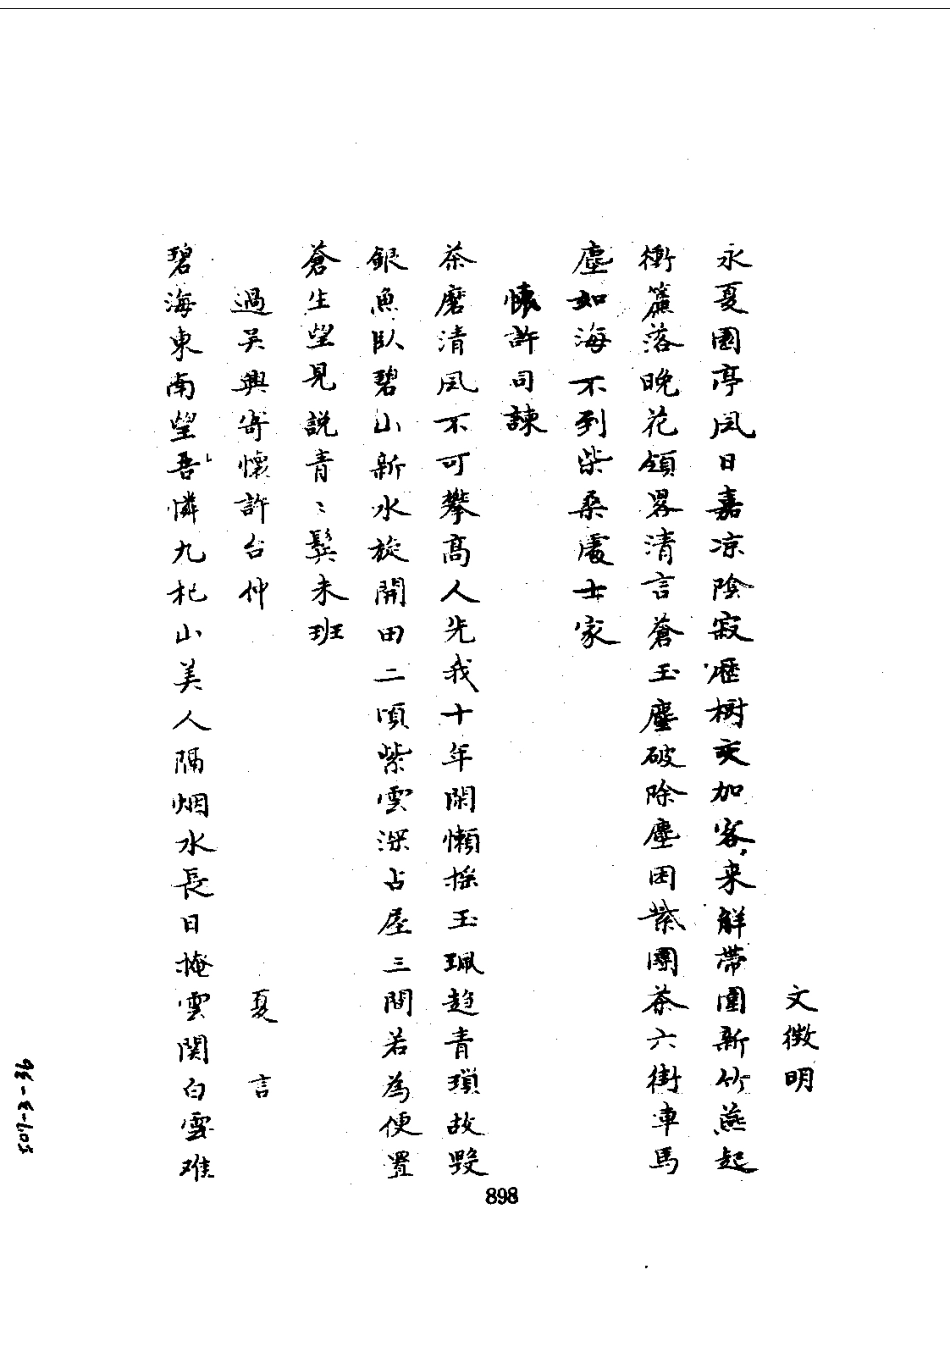 文徴明
永夏園亭風日嘉凉陰寂歷樹交加客来解帶圍新竹燕起
衝簾落晚花領畧清言蒼玉麈破除塵困紫團茶六街車馬
塵如海不到柴桑處士家
懐許司諫
茶磨清風不可攀高人先我十年閑懶揺玉珮趋青瑣故毀
銀魚臥碧山新水旋開田二頃紫雲深占屋三間若為便置
蒼生望見説青〻鬂未班
過吴興寄懷許台仲
夏言
碧海東南望吾憐九杞山美人隔烟水長日掩雲関白雪难
898
501-3-36